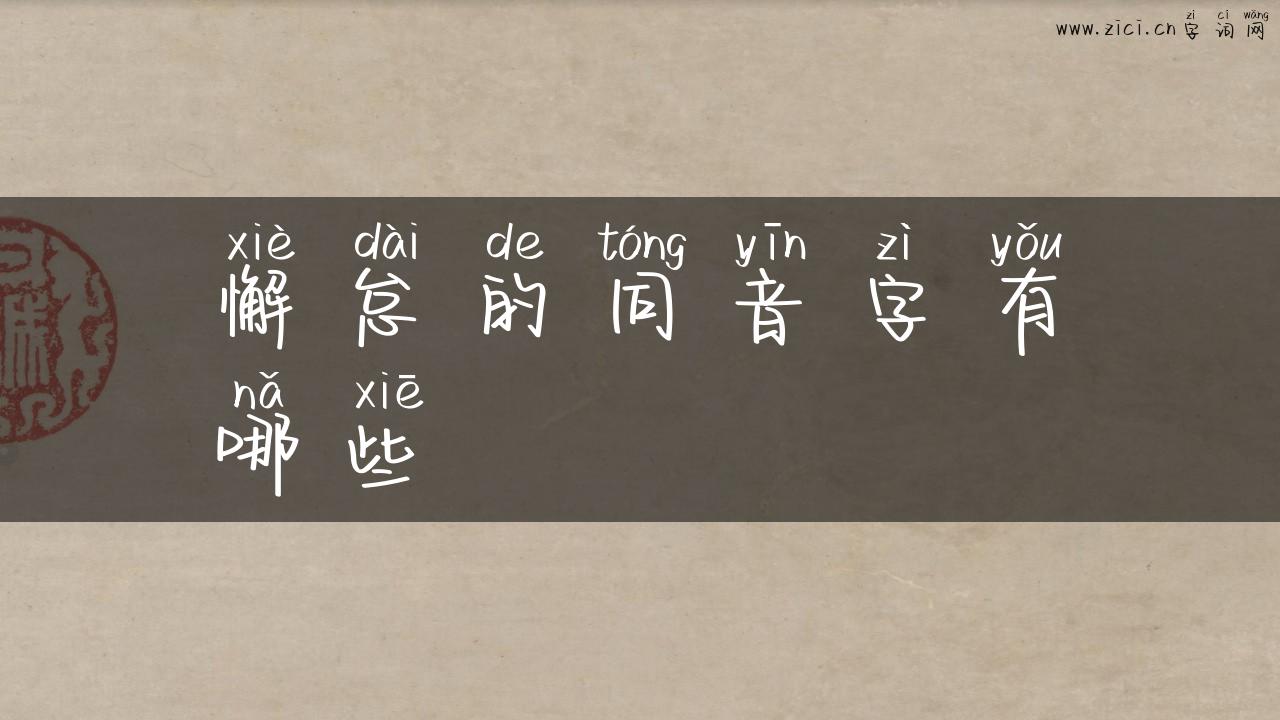 zì cí wǎng
www.zici.cn字词网
xiè dài de tóng yīn zì yǒu
懈怠的同音字有
nǎ xiē
哪些